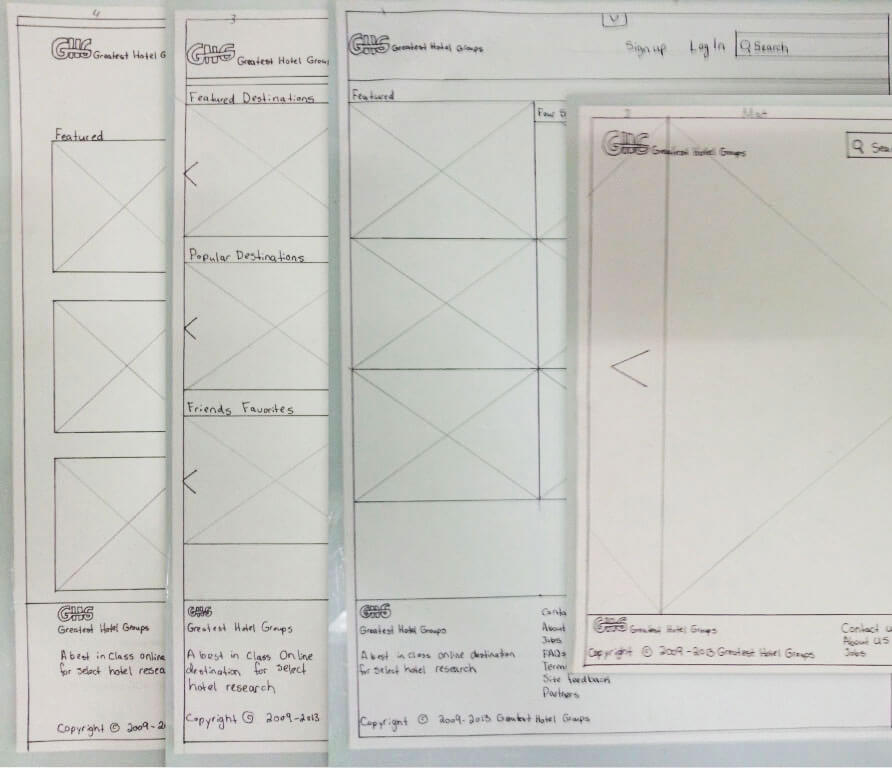 4
GHG Greatest Hotel G
Featured
GHG
Greatest Hotel Groups
A best in Class online
for select hotel resea
Copyright © 2009-2
3
GHG Greatest Hotel Grou
Featured Destinations
<
Popular Destinations
<
Friends Favorites
<
GHG
Greatest Hotel Groups
A best in Class Online
destination for select
hotel research
Copyright © 2009-2013
GHG Greatest Hotel Groups
Sign up Log In Search
Featured
Four S
GHG
Greatest Hotel Groups
A best in class online destination
for select hotel research
Conta
About
Jobs
FAQs
Term
Site feedback
Partners
Copyright © 2009-2013 Greatest Hotel Groups
2
GHG Greatest Hotel Groups
Sea
<
GHG Greatest Hotel Groups
Copyright © 2009-2013 Greatest Hotel Groups
Contact u
About us
Jobs